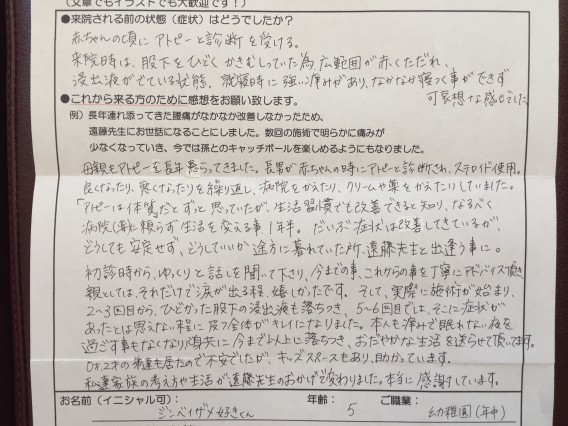 (文章でもイラストでも大歓迎です!)
●来院される前の状態(症状)はどうでしたか?
赤ちゃんの頃にアトピーと診断を受ける。
来院時は、股下をひどくかきむしっていた為、広範囲が赤くただれ、
浸出液がでている状態。就寝時に強い痒みがあり、なかなか寝つく事ができず
可哀想な感じでした。
●これから来る方のために感想をお願い致します。
例)長年連れ添ってきた腰痛がなかなか改善しなかったため、
遠藤先生にお世話になることにしました。数回の施術で明らかに痛みが
少なくなっていき、今では孫とのキャッチボールを楽しめるようにもなりました。
母親もアトピーを長年患ってきました。長男が赤ちゃんの時にアトピーと診断され、ステロイド使用。
良くなったり、悪くなったりを繰り返し、病院をかえたり、クリームや薬をかえたりしていました。
「アトピーは体質だとずっと思っていたが、生活習慣でも改善できると知り、なるべく
病院(薬)に頼らず生活を変える事1年半。だいぶ症状は改善してきているが、
どうしても安定せず、どうしていいか途方に暮れていた所、遠藤先生と出逢う事に。
初診時から、ゆっくりと話しを聞いて下さり、今までの事、これからの事を丁寧にアドバイス頂き
親としては、それだけで涙が出る程、嬉しかったです。そして、実際に施術が始まり、
2〜3回目から、ひどかった股下の浸出液も落ちつき、5〜6回目では、そこに症状が
あったとは思えない程に皮フ全体がキレイになりました。本人も痒みで眠れない夜を
過ごす事もなくなり、情緒に今まで以上に落ちつき、おだやかな生活を送らせて頂いてます。
0才、2才の弟達も居たので不安でしたが、キッズスペースもあり、助かっています。
私達家族の考え方や生活が遠藤先生のおかげで変わりました。本当に感謝しています。
お名前(イニシャル可): ジンベイザメ好きくん 年齢: 5 ご職業: 幼稚園(年中)